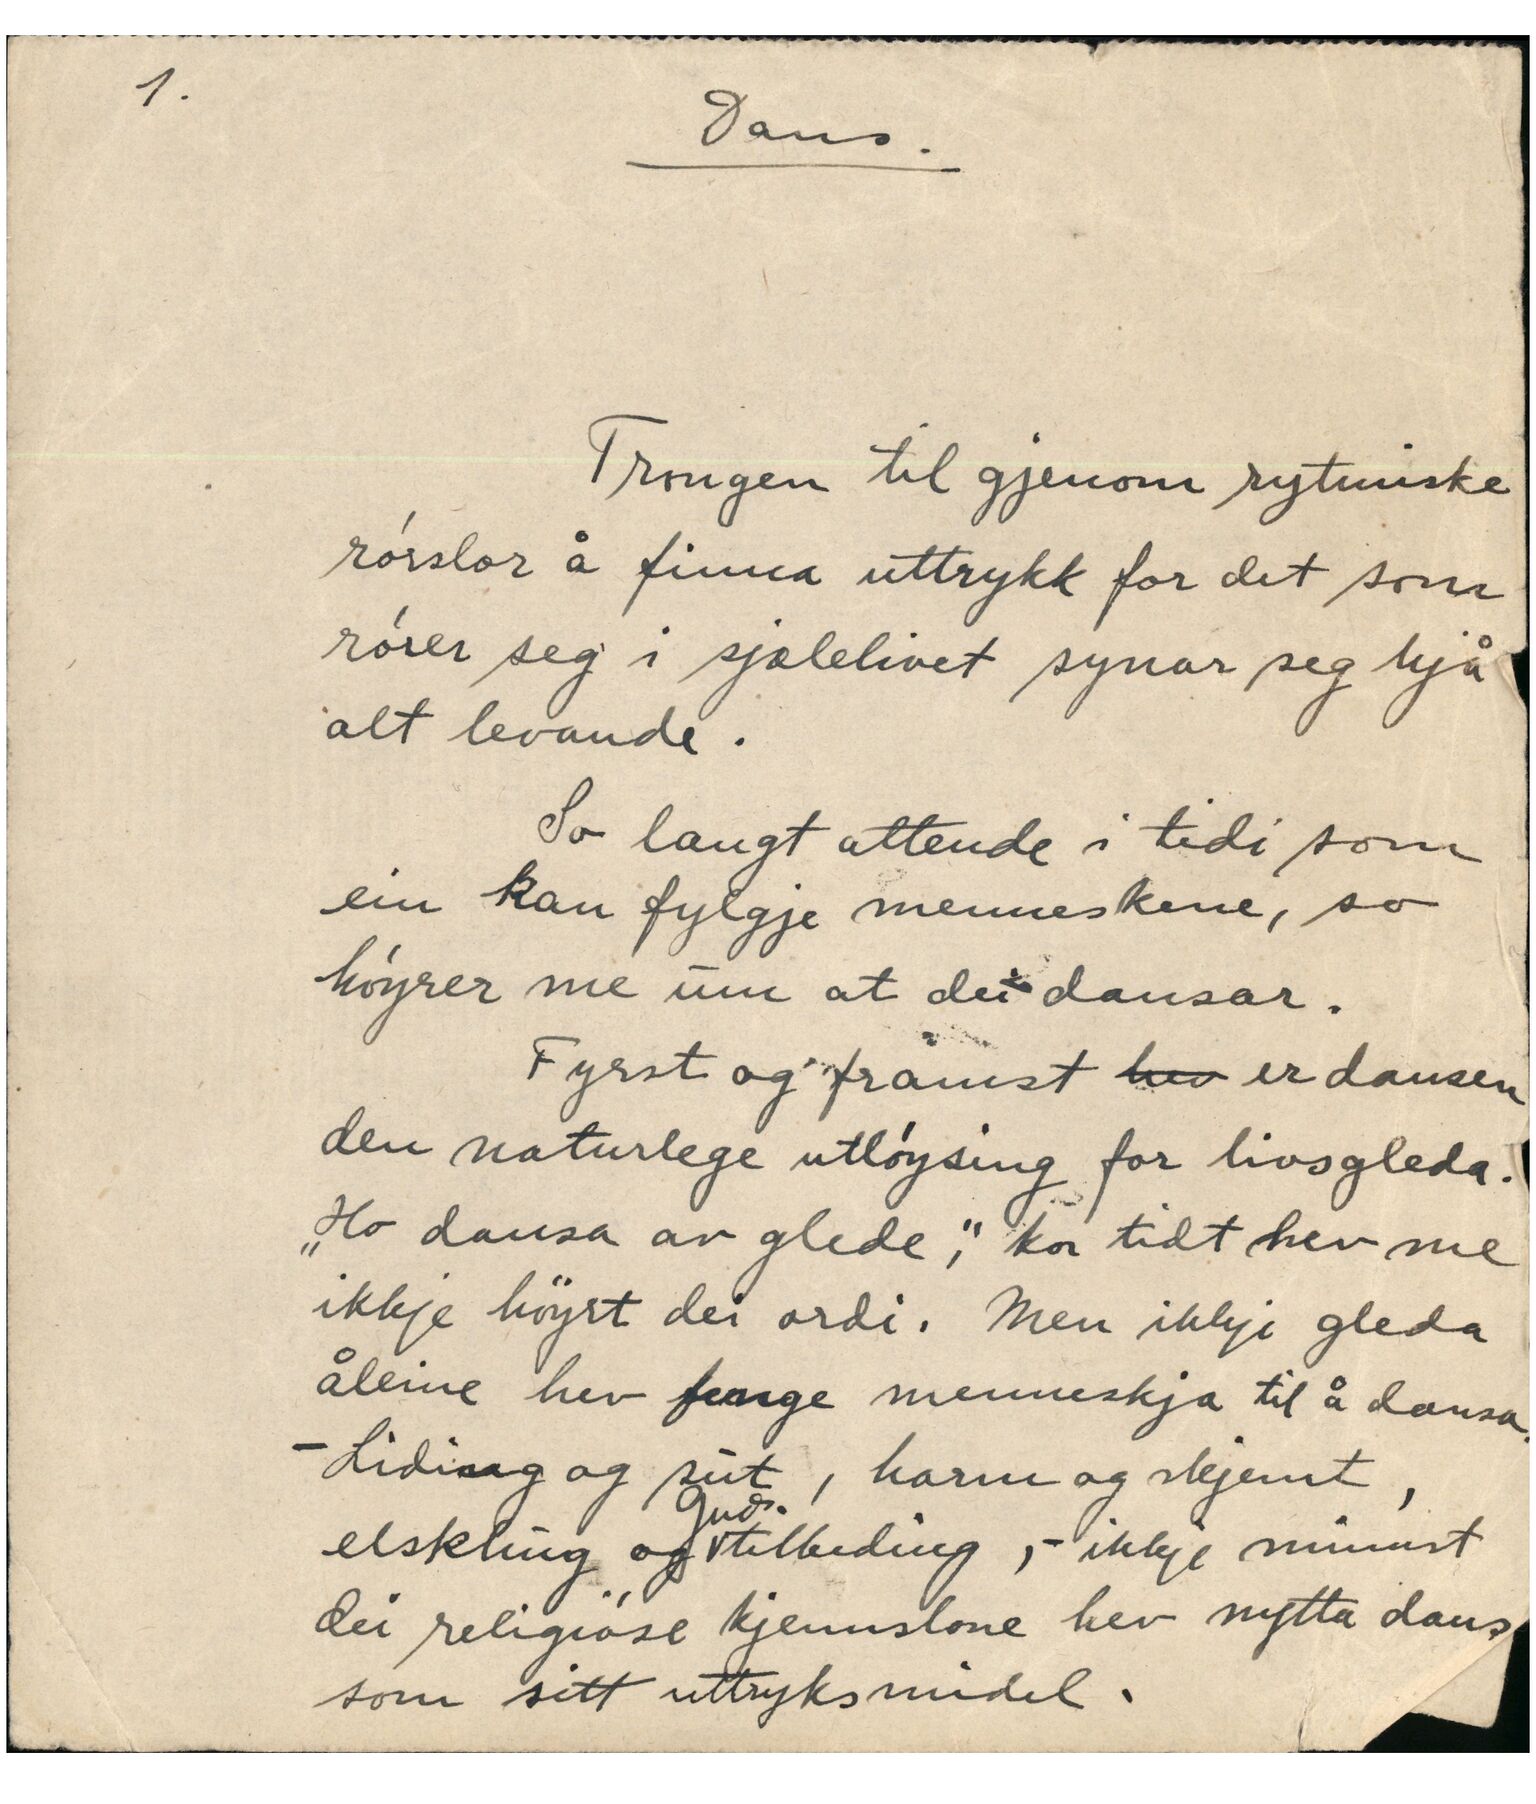 1.
Dans.
Trongen til gjenom rytmiske
rórslor å finna uttrykk for det som
rórer seg i sjølelivet synar seg hjå
alt levande.
So langt attende i tidi som
ein kan fylgje menneskene, so
hóyrer me um at dei dansar.
Fyrst og framst hev er dansen
den naturlege utlóysing for livsgleda.
„Ho dansa av glede," kor tidt hev me
ikkje höyrt dei ordi. Men ikkje gleda
åleine hev fenge menneskja til å dansa.
- Liding og sut, harm og skjemt,
Guds-
elskhug og tilbeding, - ikkje minnst
dei religiöse kjennslone hev nytta dans
som sitt uttryksmidel.